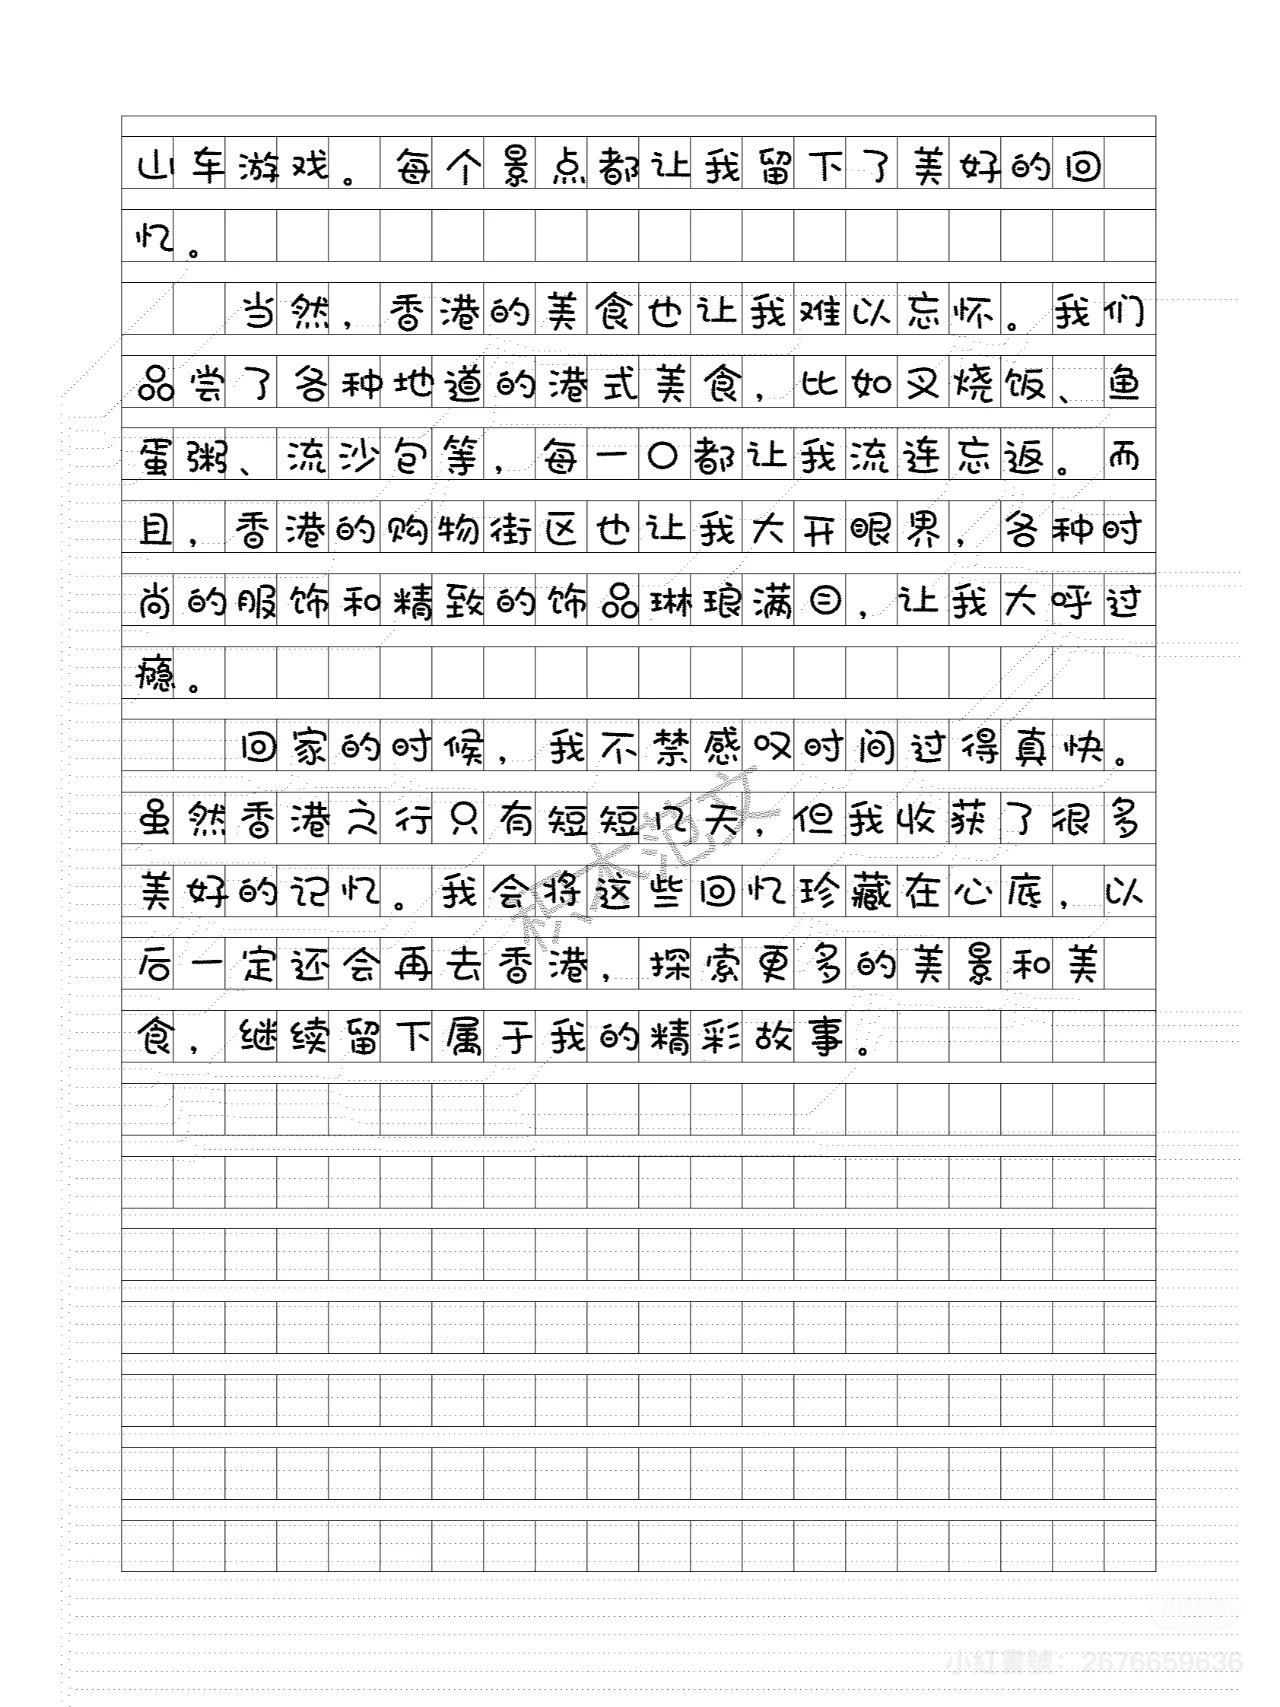 山车游戏。每个景点都让我留下了美好的回
忆。
当然，香港的美食也让我难以忘怀。我们
品尝了各种地道的港式美食，比如叉烧饭、鱼
蛋粥、流沙包等，每一口都让我流连忘返。而
且，香港的购物街区也让我大开眼界，各种时
尚的服饰和精致的饰品琳琅满目，让我大呼过
瘾。
回家的时候，我不禁感叹时间过得真快。
虽然香港之行只有短短亿天，但我收获了很多
美好的记忆。我会将这些回忆珍藏在心底，以
后一定还会再去香港，探索更多的美景和美
食，继续留下属于我的精彩故事。
积木范文
小紅書號：2676659636